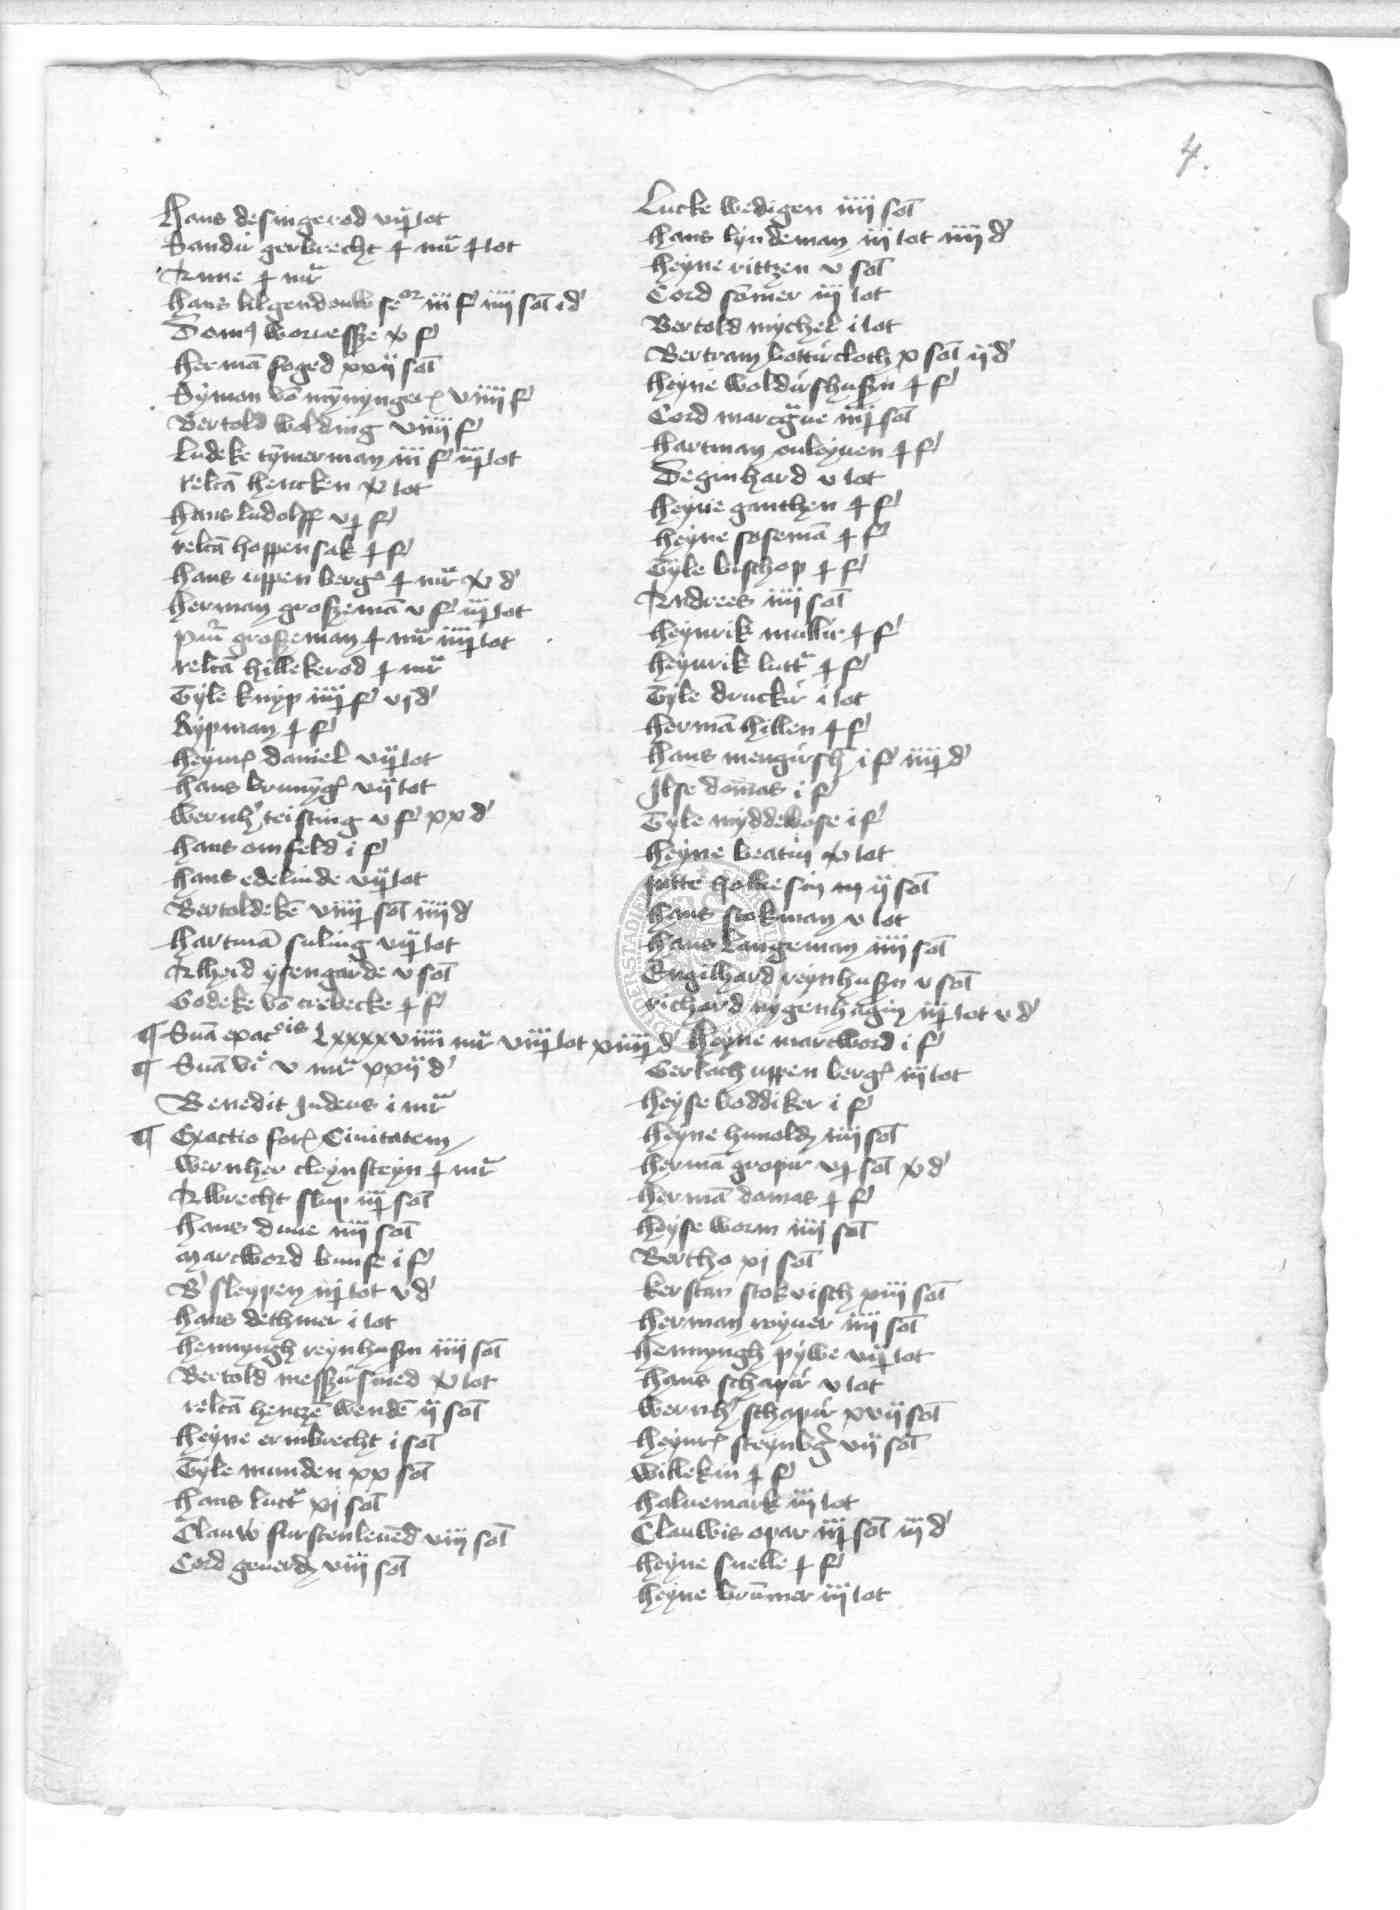 4.
Hans desingerod vij lot
Sandur gerbrecht ɟ mr ɟ lot
Anne ɟ mr
hans lilgendonw seor iij f iiij sol i d
Dom9 worvessze x f
herman foged xxij sol
Syman von mynnynger viiij f
Bertold wolding viiij f
Ludeke tymerman iij f iij lot
relca hencken x lot
hans ludolff vj f
relca hoppensak ɟ f
hans uppen berge ɟ mr x d
herman groszeman v f iij lot
groszeman ɟ mr iiij lot
relca hillekerod ɟ mr
Tyle knyp iiij f vj d
Rypman ɟ f
heynr daniel vij lot
hans brunyge vij lot
wernh teisting v f xx d
hans omfeld i f
hans edelinde vij lot
Bertoldeken viiij sol iiij d
hartman suling vij lot
Alheid ysengarde v sol
Godeke von crebecke ɟ f
¶ Sum exaccois Lxxxxviiii mr viij lot xiiij d
¶ Sum vi v mr xxij d
Benedit Judeus i mr
¶ Exactio for Civitatem
wernher cleynsteyn ɟ mr
Albrecht slup iij sol
hans dune iiij sol
marcword bunse i f
B sleypen iij lot v d
hans dethmer i lot
hennyngh reynhusen iiij sol
Bertold meszursmed x lot
relca hentzen wenden ij sol
heyne ermbrecht i sol
Tyle munden xx sol
hans lutter xi sol
Clauw furstenlevend viij sol
Cord geverdes viij sol
Lucke wedigen iiij sol
hans lyndeman iij lot iiij d
heyne rittzen v sol
Cord somer iij lot
Bertold mychel i lot
Bertram botturcloth x sol ij d
heyne woldurshusen ɟ f
Cord marcgrave iiij sol
hartman ouleyven ɟ f
Deginhard v lot
heyne ganthen ɟ f
heyne soseman ɟ f
Tyle bischop ɟ f
Andrees iiij sol
heynrik mullur ɟ f
heynrik lutter ɟ f
Tyle druckur i lot
herman hillen ɟ f
hans mengursh i f iiij d
Ilse domas i f
Tyle myddewose i f
heyne beatin x lot
jutte ij sol
hans stokman v lot
hans langeman iiij sol
Engilhard reynhusen v sol
richard nygenhagin iij lot v d
heyne marcword i f
Gerlach uppen berge iij lot
heyse boddiker i f
heyne hunoldes iiij sol
herman gropur vj sol x d
herman domas ɟ f
heyse worm iiij sol
Bertho xi sol
kerstan stokvisch xiij sol
herman wyner iiij sol
hennyngh pywe vij lot
hans schapur v lot
wernh schapur xvij sol
heynr steynberg vij sol
willekin ɟ f
halvemark iij lot
Clauwis opar iij sol iij d
heyne snelle ɟ f
heyne brummer iij lot